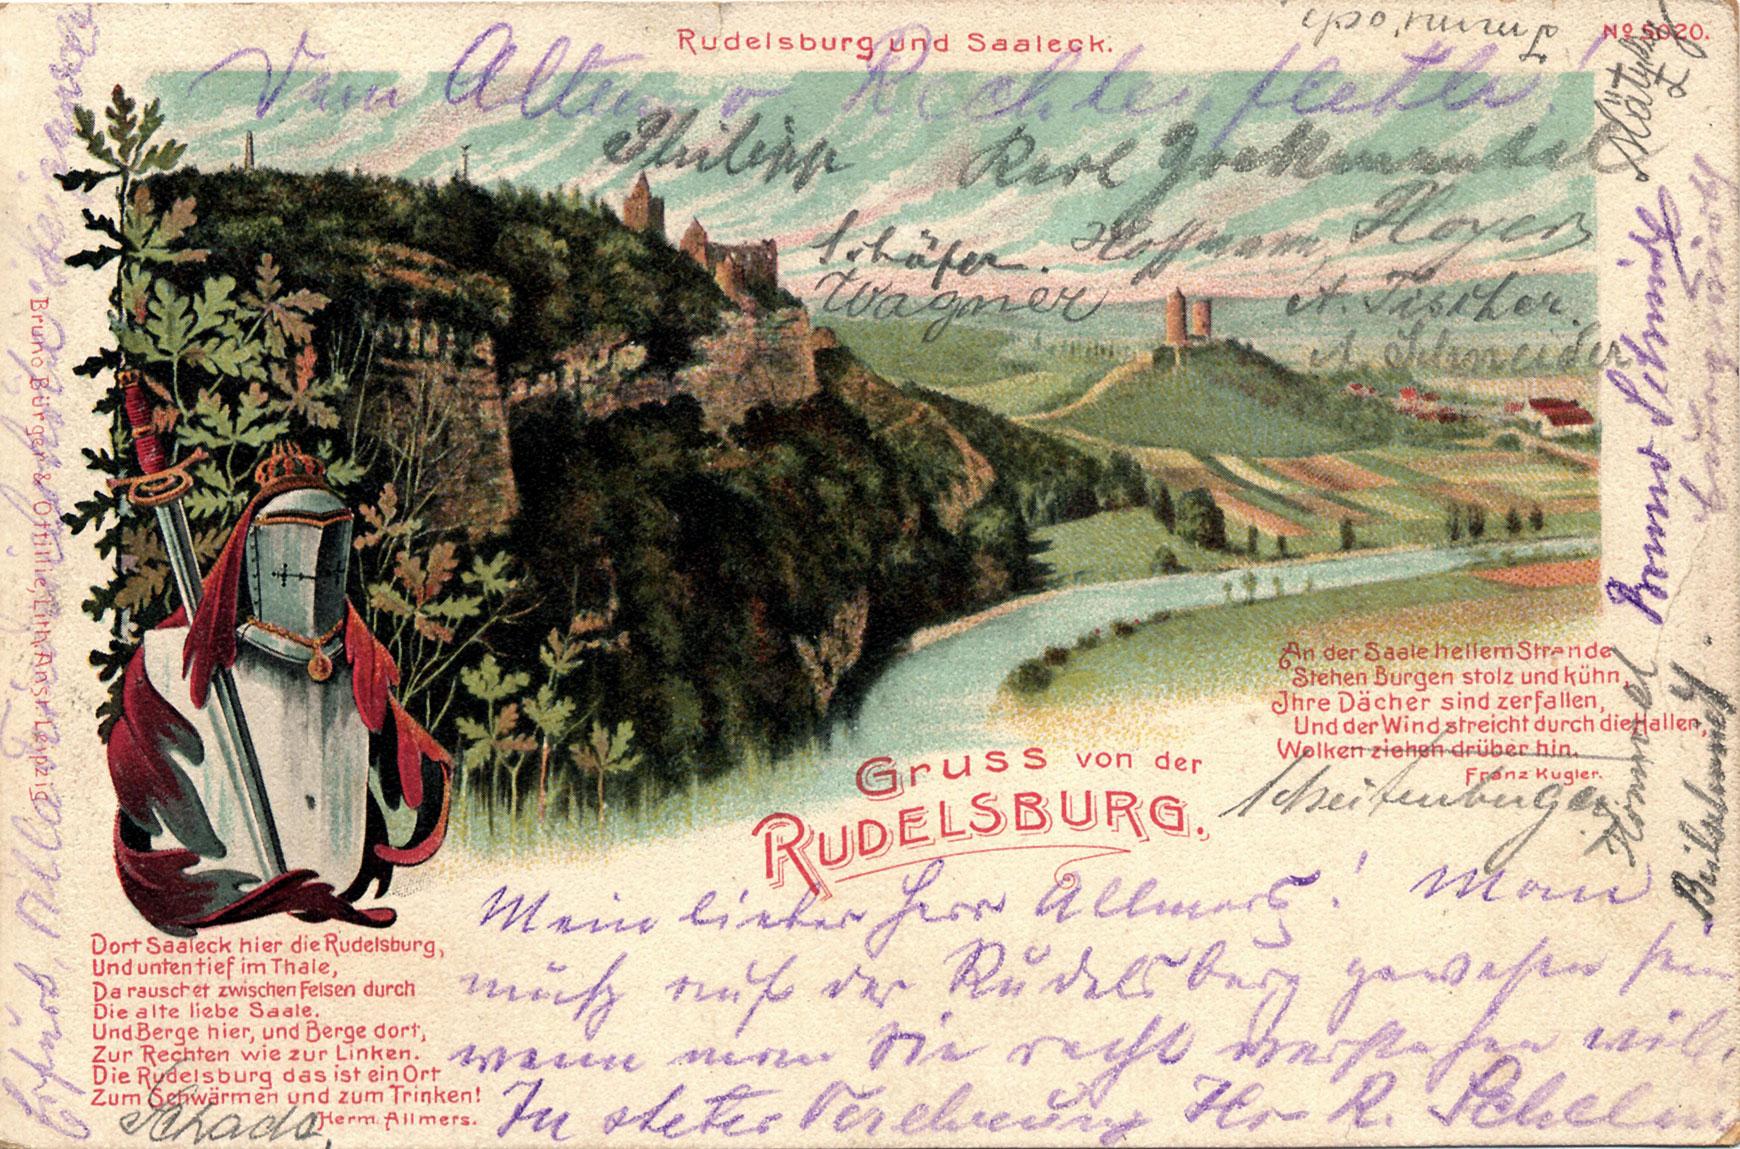 Rudelsburg und Saaleck.
No 5020.
Vom Alten v Rechtenfleth!
Philipp
Karl
Schäfer.
Hoffmann,
Hoyer
Wagner
A. Fischer.
A Schneider
Bruno Schmidt
Bruno Bürger & Ottillie, Lith. Anst. Leipzig
An der Saale hellem Strande
Stehen Burgen stolz und kühn,
Jhre Dächer sind zerfallen,
Und der Wind streicht durch die Hallen,
Wolken ziehen drüber hin.
Franz Kugler.
Gruss von der
Rudelsburg.
Hommel
Mein lieber Herr Allmers! Man
muß auf der Rudelsburg gewesen sein
wenn man Sie recht verstehen will.
In steter Verehrung Ihr R.
Dort Saaleck hier die Rudelsburg,
Und unten tief im Thale,
Da rauschet zwischen Felsen durch
Die alte liebe Saale.
Und Berge hier, und Berge dort,
Zur Rechten wie zur Linken.
Die Rudelsburg das ist ein Ort
Zum Schwärmen und zum Trinken!
Herm. Allmers.
Schade,